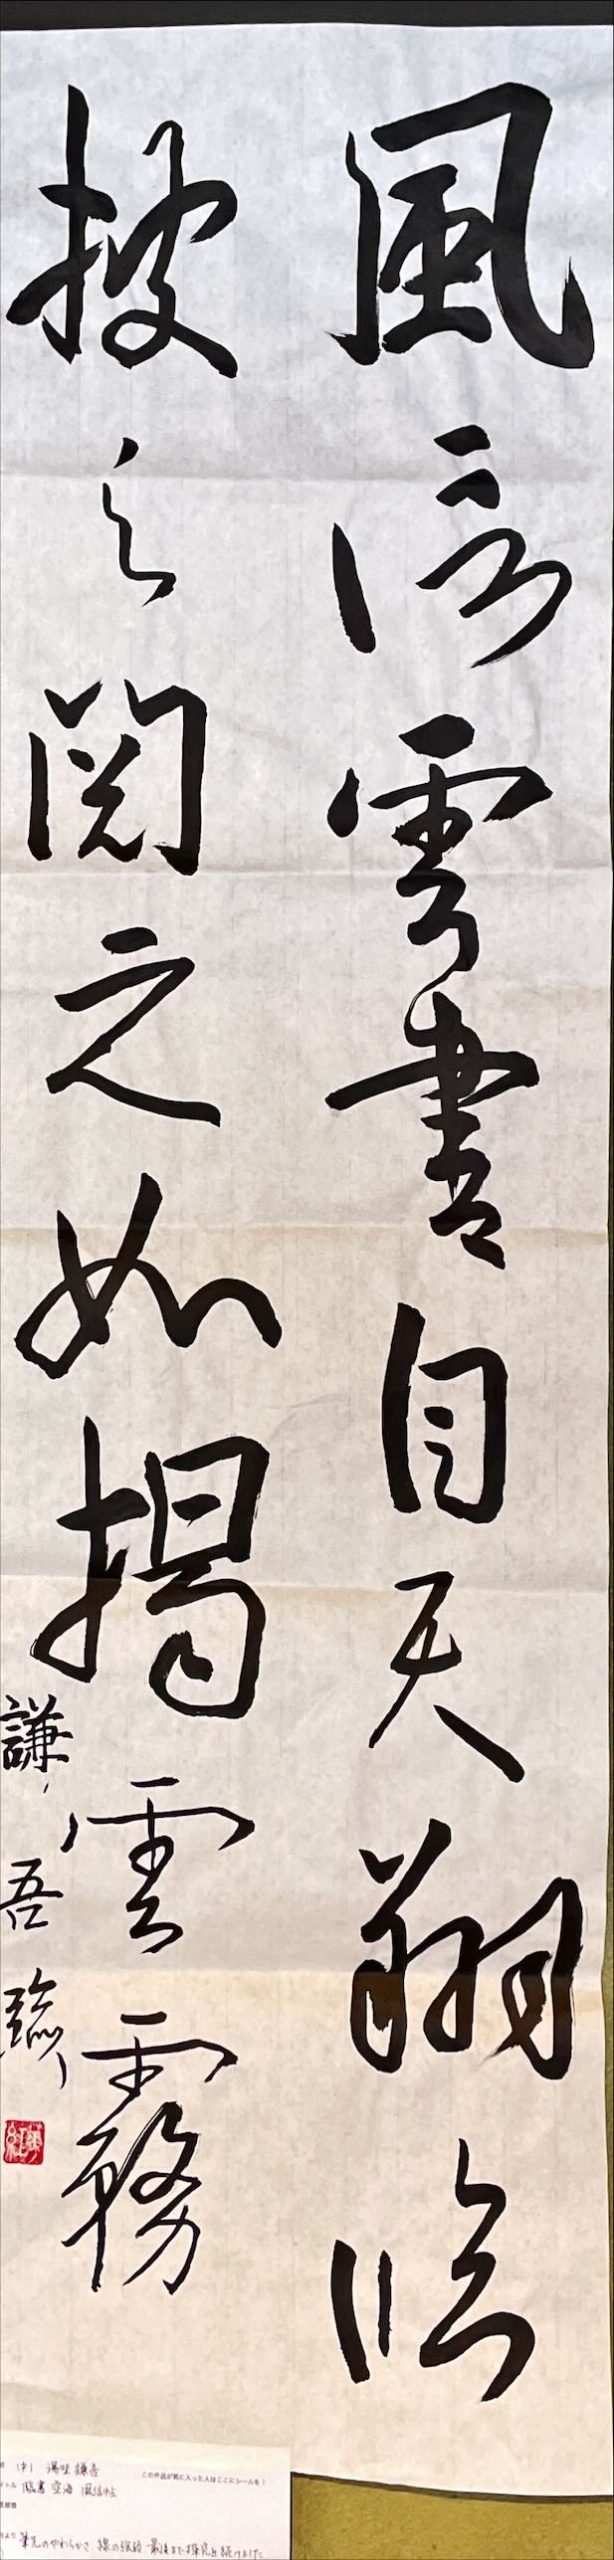 風信雲書自天翔臨
披之閲之如掲雲霧
謙吾臨
中1 湯 謙吾
この作品が気に入った人はここにシールを!
臨書 空海 風信帖
筆先のやわらかさ、線の強弱、最後まで探究を続けました